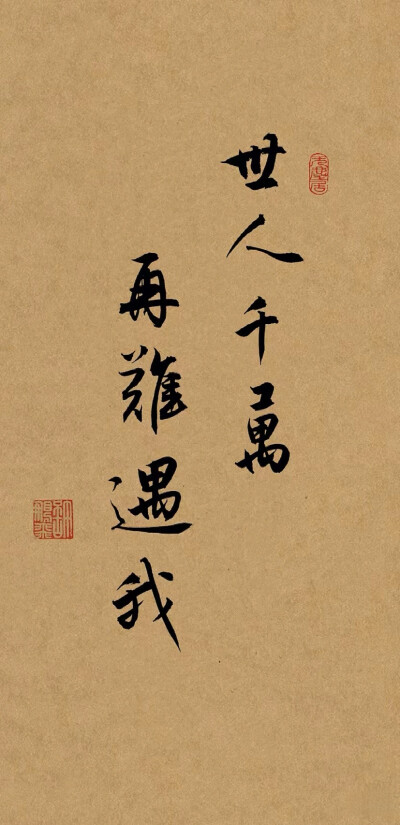 世人千萬
再難遇我